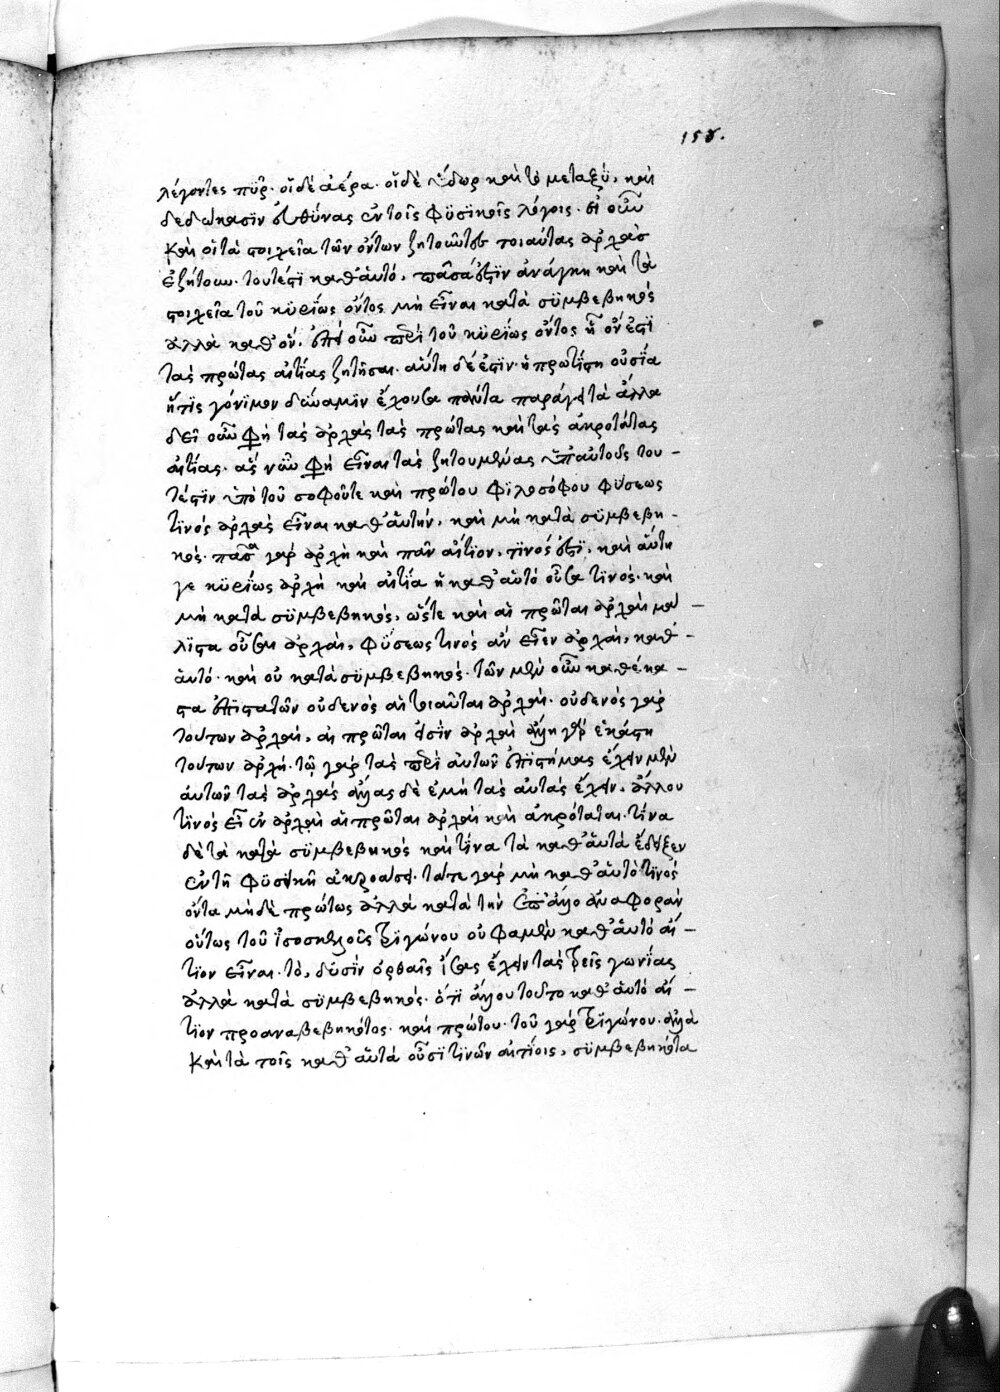 158.
λέγοντες πῦρ· οἱ δὲ ἀέρα· οἱ δὲ ὕδωρ καὶ τὸ μεταξὺ, καὶ
δεδώκασιν εὐθύνας ἐν τοῖς φυσικοῖς λόγοις· εἰ οὖν
καὶ οἱ τὰ στοιχεῖα τῶν ὄντων ζητοῦντες τοιαύτας ἀρχὰς
ἐζήτουν· τουτέστι καθ' αὑτό, πᾶσα ἐστὶν ἀνάγκη καὶ τὰ
στοιχεῖα τοῦ κυρίως ὄντος μὴ εἶναι κατὰ συμβεβηκός
ἀλλὰ καθ' ὅν, ἐπεὶ οὖν περὶ τοῦ κυρίως ὄντος ᾗ ὄν ἐστι
τὰς πρώτας αἰτίας ζητῆσαι· αὕτη δέ ἐστιν ἡ πρωτίστη οὐσία
ἥτις γόνιμον δύναμιν ἔχουσα πάντα παράγει τὰ ἄλλα
δεῖ οὖν φη τὰς ἀρχὰς τὰς πρώτας καὶ τὰς ἀκροτάτας
αἰτίας· ἃς νῦν φη εἶναι τὰς ζητουμένας ὑπ' αὐτοῦ του-
τέστιν ὑπὸ τοῦ σοφοῦ τε καὶ πρώτου φιλοσόφου φύσεως
τινός ἀρχὰς εἶναι καθ' αὑτήν, καὶ μὴ κατὰ συμβεβη-
κός· πᾶσα γὰρ ἀρχὴ καὶ πᾶν αἴτιον, τινός ἐστι, καὶ αὕτη
γε κυρίως ἀρχὴ καὶ αἰτία ἡ καθ' αὑτὸ οὖσα τινός· καὶ
μὴ κατὰ συμβεβηκός, ὥστε καὶ αἱ πρῶται ἀρχαὶ μά-
λιστα οὖσαι ἀρχαὶ, φύσεως τινός ἂν εἶεν ἀρχαὶ, καθ'
αὑτό· καὶ οὐ κατὰ συμβεβηκός· τῶν μὲν οὖν καθέκα-
στα ἐπιστατῶν οὐδενός αἱ τοιαῦται ἀρχαὶ· οὐδενός γὰρ
τούτων ἀρχαὶ, αἱ πρῶται εἰσὶν ἀρχαὶ ἄλλη γὰρ ἑκάστη
τούτων ἀρχὴ· τῷ γὰρ τὰς περὶ αὐτῶν ἐπιστήμας ἔχειν μὲν
αὐτῶν τὰς ἀρχὰς ἄλλας δὲ ἐμὴ τὰς αὐτὰς ἔχειν· ἄλλου
τινός εἰσὶν ἀρχαὶ αἱ πρῶται ἀρχαὶ καὶ ἀκρόταται· τίνα
δὲ τὰ κατὰ συμβεβηκός καὶ τίνα τὰ καθ' αὑτὰ ἔδειξεν
ἐν τῇ φυσικῇ ἀκροάσει· τά τε γὰρ μὴ καθ' αὑτὸ τινός
ὄντα μηδὲ πρώτως ἀλλὰ κατὰ τὴν ἐπ' ἄλλο ἀναφορὰν
οὕτως τοῦ ἰσοσκελοῦς τριγώνου οὔ φαμὲν καθ' αὑτὸ αἴ-
τιον εἶναι· τὸ, δυσὶν ὀρθαῖς ἴσας ἔχειν τὰς τρεῖς γωνίας
ἀλλὰ κατὰ συμβεβηκός· ὅτι ἄλλου τούτο καθ' αὑτὸ αἴ-
τιον προαναβεβηκότος· καὶ πρώτου· τοῦ γὰρ τριγώνου· ἀλλὰ
καὶ τὰ τοῖς καθ' αὑτὰ οὖσί τινων αἰτίοις, συμβεβηκότα